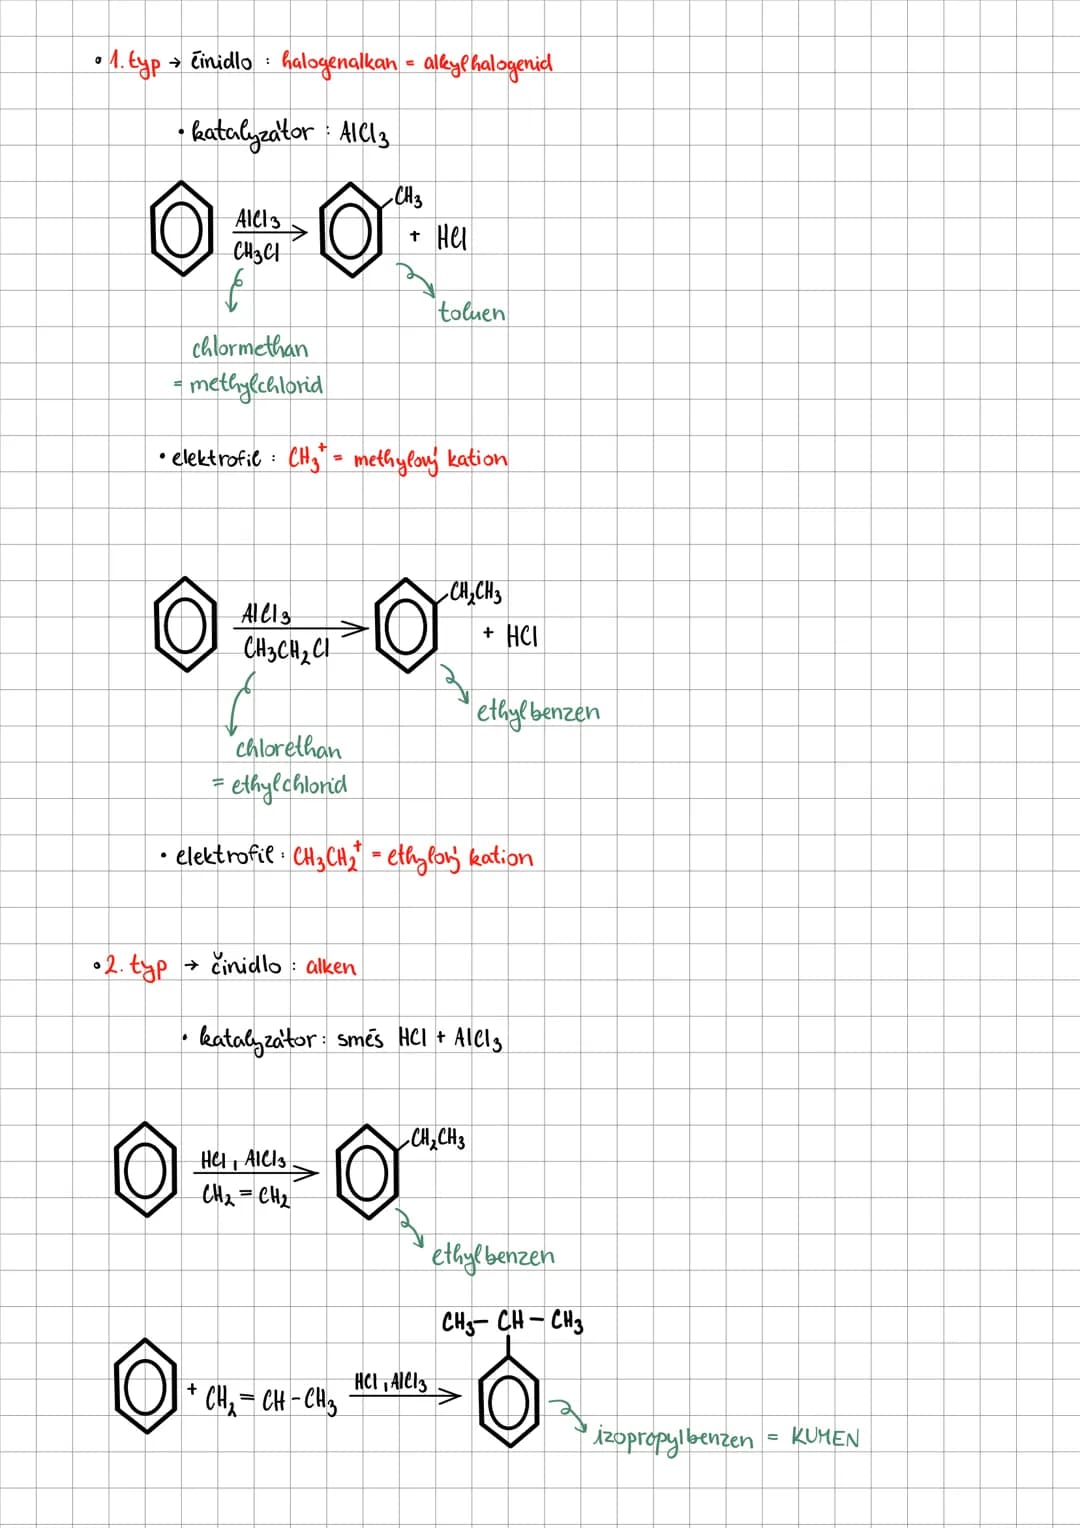 • 1. typ → činidlo : halogenalkan = alkylhalogenid
• katalyzátor : AlCl3
AlCl3
CH3Cl
CH3
+ HCl
toluen
chlormethan
= methylchlorid
• elektrofil : CH3+ = methylový kation
AlCl3
CH3CH2Cl
CH2CH3
+ HCl
ethylbenzen
chlorethan
= ethylchlorid
• elektrofil : CH3CH2+ = ethylový kation
• 2. typ → činidlo : alken
• katalyzátor : směs HCl + AlCl3
HCl, AlCl3
CH2 = CH2
CH2CH3
ethylbenzen
CH3 – CH – CH3
+ CH2 = CH - CH3
HCl, AlCl3
izopropylbenzen = KUMEN